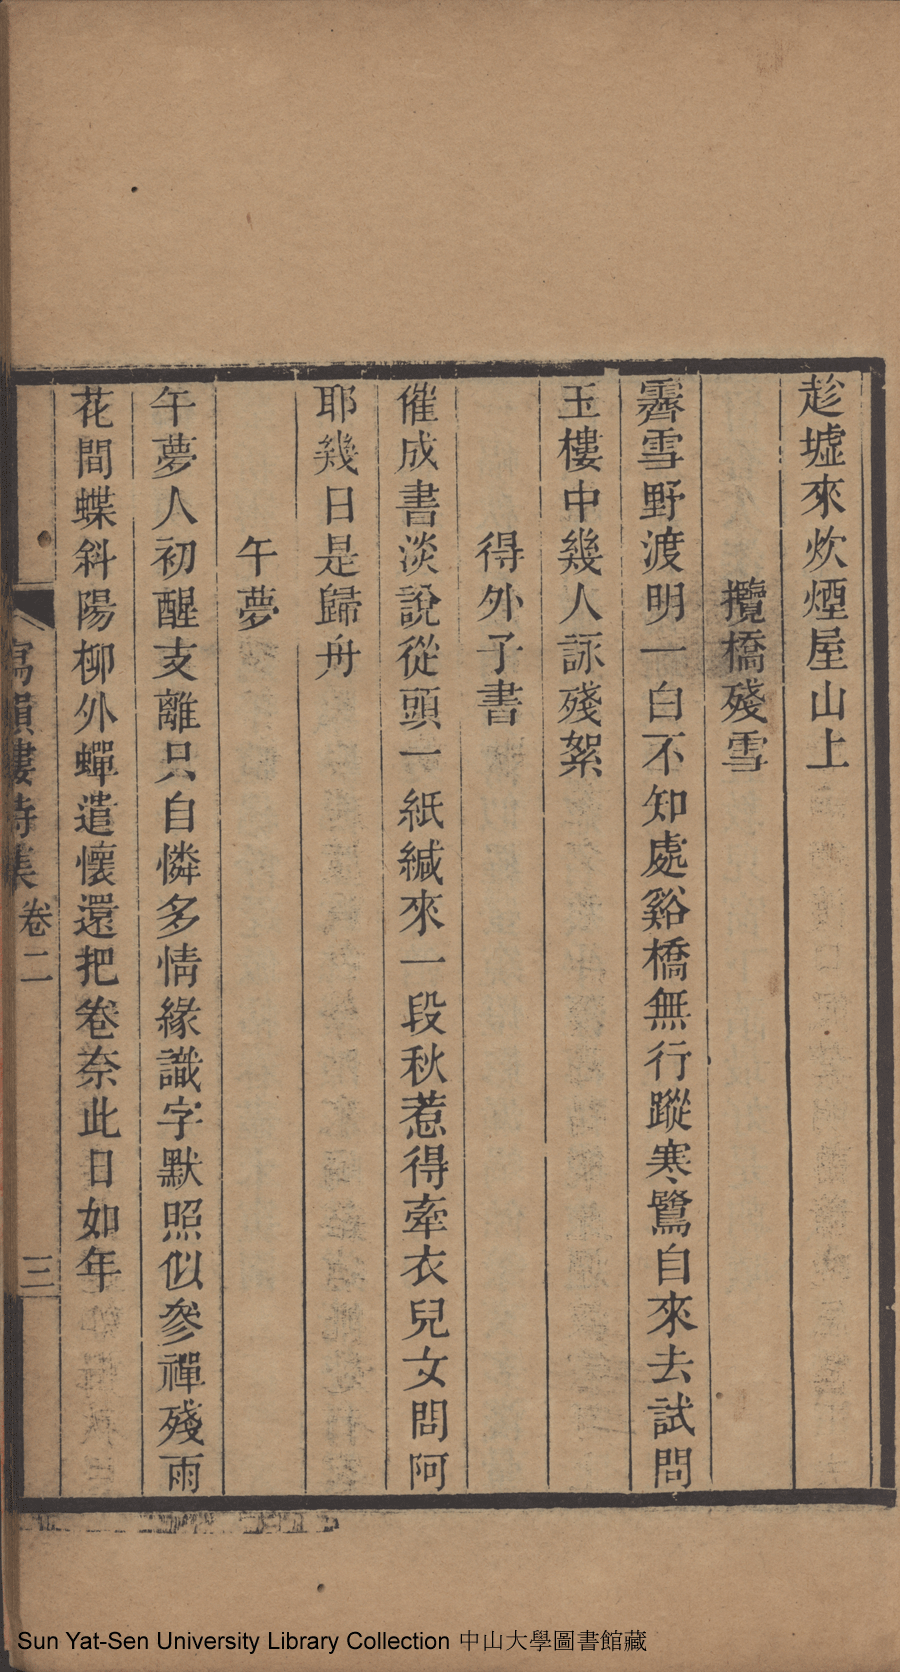 趁墟來炊煙屋山上
攬橋殘雪
霽雪野渡明一白不知處谿橋無行蹤寒鷺自來去試問
玉樓中幾人詠殘絮
得外子書
催成書淡說從頭一紙緘來一段秋惹得牽衣兒女問阿
耶幾日是歸舟
午夢
午夢人初醒支離只自憐多情緣識字默照似參禪殘雨
花間蝶斜陽柳外蟬遣懷還把卷奈此日如年
寫韻樓詩集 卷二 三
Sun Yat-Sen University Library Collection 中山大學圖書館藏